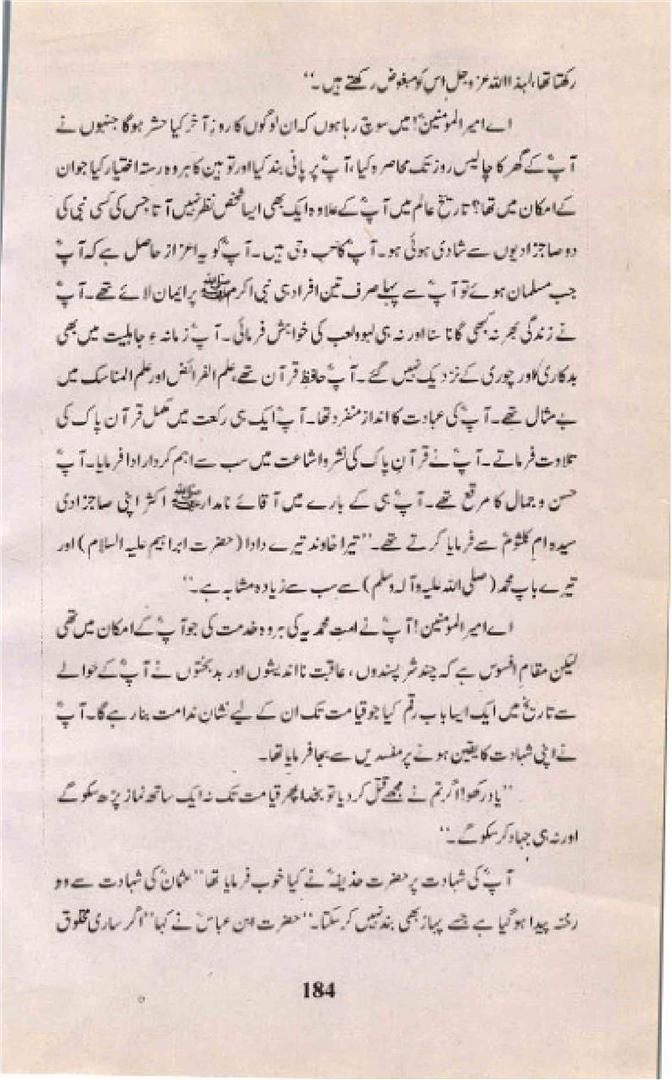 رکھتا تھا، لہذا اللہ عزوجل اس کو مبغوض رکھتے ہیں۔‘‘
اے امیر المؤمنینؓ! میں سوچ رہا ہوں کہ ان لوگوں کا روزِ آخر کیا حشر ہوگا جنہوں نے
آپؓ کے گھر کا چالیس روز تک محاصرہ کیا، آپؓ پر پانی بند کیا اور توہین کا ہر وہ رستہ اختیار کیا جو ان
کے امکان میں تھا؟ تاریخِ عالم میں آپؓ کے علاوہ ایک بھی ایسا شخص نظر نہیں آتا جس کی کسی نبی کی
دو صاحبزادیوں سے شادی ہوئی ہو۔ آپؓ کاتب وحی ہیں۔ آپؓ کو یہ اعزاز حاصل ہے کہ آپؓ
جب مسلمان ہوئے تو آپؓ سے پہلے صرف تین افراد ہی نبی اکرم ﷺ پر ایمان لائے تھے۔ آپؓ
نے زندگی بھر نہ کبھی گانا سنا اور نہ ہی لہو و لعب کی خواہش فرمائی۔ آپؓ زمانہء جاہلیت میں بھی
بدکاری اور چوری کے نزدیک نہیں گئے۔ آپؓ حافظِ قرآن تھے، علم الفرائض اور علم المناسک میں
بے مثال تھے۔ آپؓ کی عبادت کا انداز منفرد تھا۔ آپؓ ایک ہی رکعت میں مکمل قرآن پاک کی
تلاوت فرماتے۔ آپؓ نے قرآنِ پاک کی نشر و اشاعت میں سب سے اہم کردار ادا فرمایا۔ آپؓ
حسن و جمال کا مرقع تھے۔ آپؓ ہی کے بارے میں آقائے نامدار ﷺ اکثر اپنی صاحبزادی
سیدہ ام کلثومؓ سے فرمایا کرتے تھے۔ ’’تیرا خاوند تیرے دادا (حضرت ابراہیم علیہ السلام) اور
تیرے باپ محمد (صلی اللہ علیہ وآلہ وسلم) سے سب سے زیادہ مشابہ ہے۔‘‘
اے امیر المؤمنین! آپؓ نے امت محمدیہ کی ہر وہ خدمت کی جو آپؓ کے امکان میں تھی
لیکن مقامِ افسوس ہے کہ چند شر پسندوں، عاقبت نااندیشوں اور بدبختوں نے آپؓ کے حوالے
سے تاریخ میں ایک ایسا باب رقم کیا جو قیامت تک ان کے لیے نشان ندامت بنا رہے گا۔ آپؓ
نے اپنی شہادت کا یقین ہونے پر مفسدین سے بجا فرمایا تھا۔
’’یاد رکھو! اگر تم نے مجھے قتل کر دیا تو بخدا پھر قیامت تک نہ ایک ساتھ نماز پڑھ سکو گے
اور نہ ہی جہاد کر سکو گے۔‘‘
آپؓ کی شہادت پر حضرت حذیفہؓ نے کیا خوب فرمایا تھا ’’عثمانؓ کی شہادت سے وہ
رخنہ پیدا ہو گیا ہے جسے پہاڑ بھی بند نہیں کر سکتا۔‘‘ حضرت ابن عباسؓ نے کہا ’’اگر ساری مخلوق
184